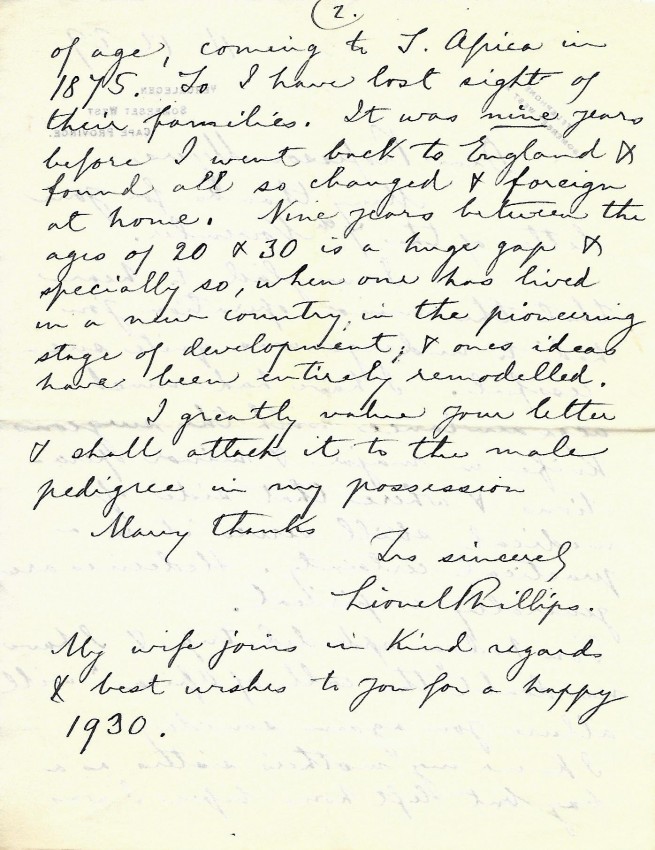 (2.
of age, coming to S. Africa in
1875. So I have lost sight of
their families. It was nine years
before I went back to England &
found all so changed & foreign
at home. Nine years between the
ages of 20 & 30 is a huge gap &
specially so, when one has lived
in a new country, in the pioneering
stage of development; & ones ideas
have been entirely remodelled.
I greatly value your letter
& shall attach it to the male
pedigree in my possession
Many thanks
Yrs sincerely
Lionel Phillips.
My wife joins in kind regards
& best wishes to you for a happy
1930.